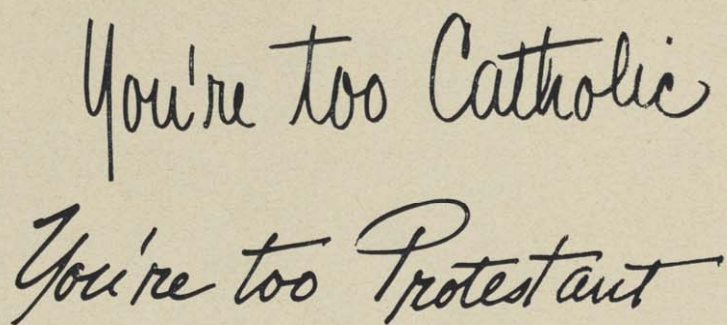 You're too Catholic
You're too Protestant